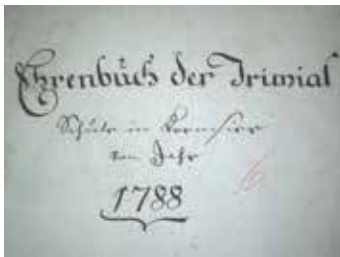 Ehrenbuch der Trimial
Schule in Kremsier
vom Jahr
1788
6